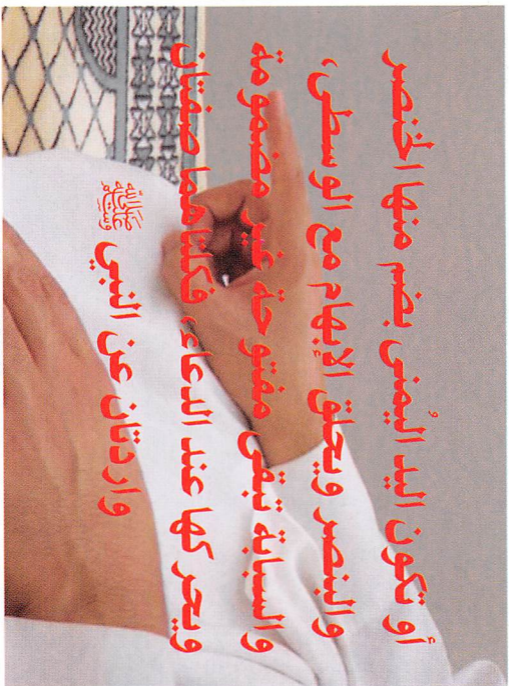 أو تكون اليد اليُمنى يضم منها الخنصر
والبنصر ويحلق الإبهام مع الوسطى،
والسبابة تبقى مفتوحة غير مضمومة
ويحركها عند الدعاء، فكلتاهما صفتان
واردتان عن النبي ﷺ